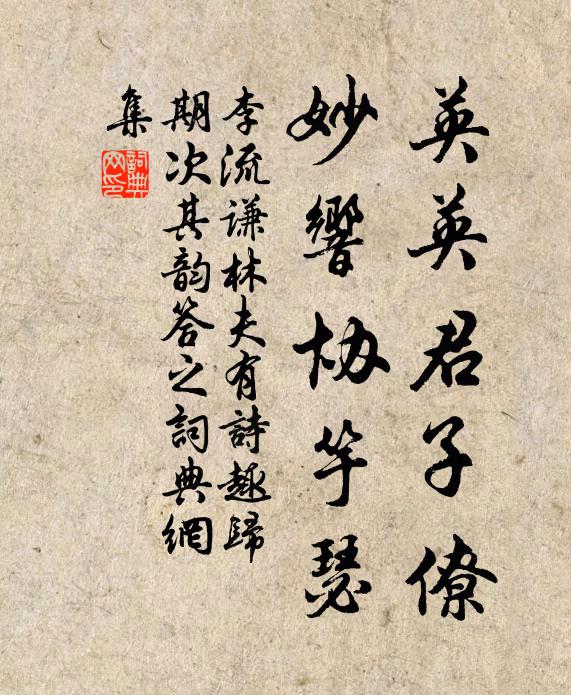 英英君子僚
妙響協竽瑟
李流謙林夫有詩趣歸
期次其韵答之詞典網
集
詞典網印